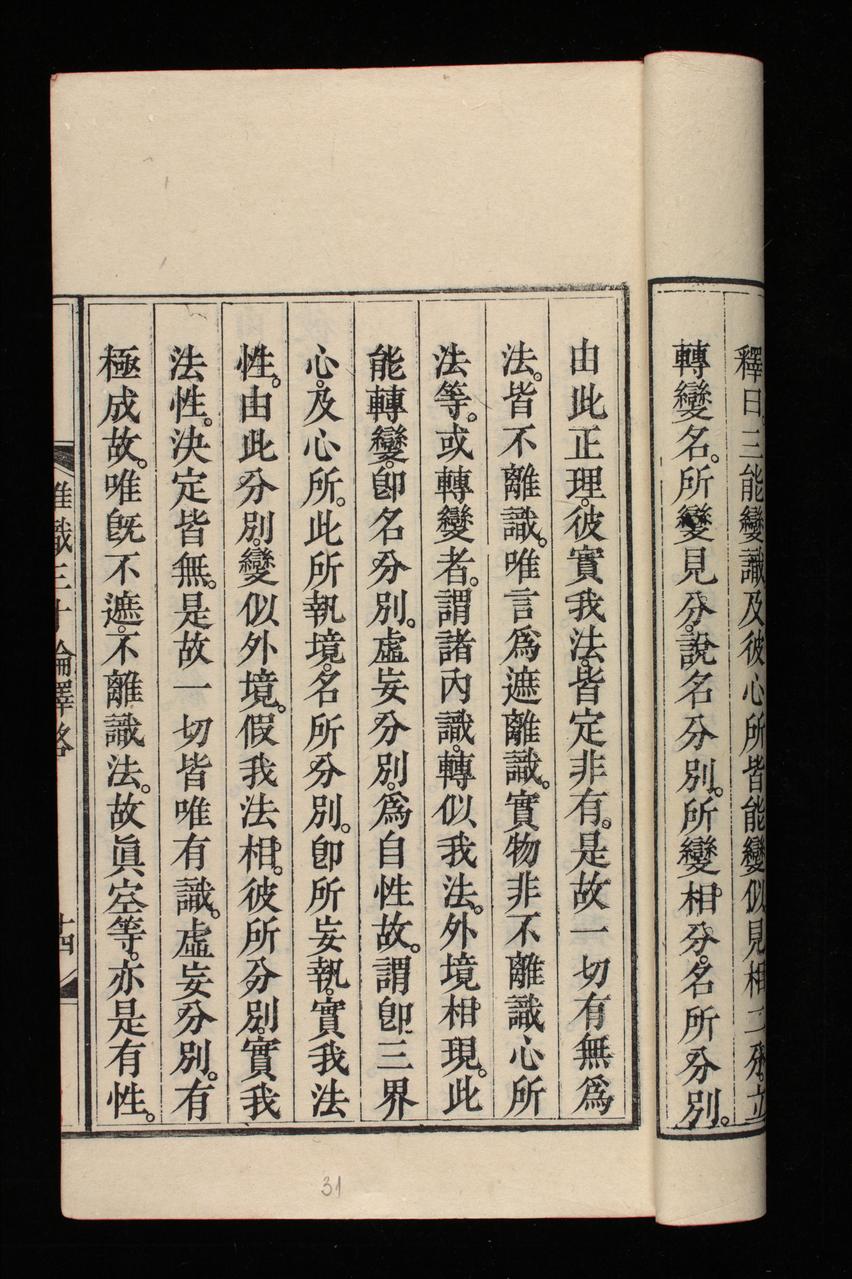 釋曰三能變識及彼心所皆能變似見相二分立
轉變名。所變見分。說名分別。所變相分。名所分別。
由此正理。彼實我法。皆定非有。是故一切有無為
法。皆不離識。唯言為遮離識。實物非不離識心所
法等。或轉變者。謂諸內識。轉似我法。外境相現。此
能轉變。卽名分別。虛妄分別。為自性故。謂卽三界
心。及心所。此所執境。名所分別。卽所妄執。實我法
性。由此分別。變似外境。假我法相。彼所分別。實我
法性。決定皆無。是故一切皆唯有識。虛妄分別。有
極成故。唯旣不遮。不離識法。故眞空等。亦是有性。
唯識三十論釋略
十四
31